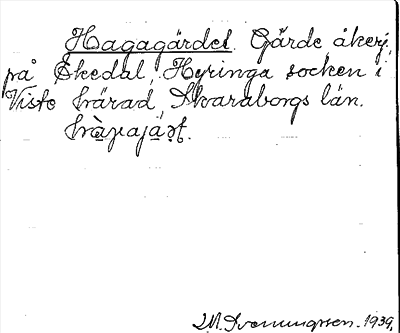 Hagagärdet. Gärde åkerj.
på Skedal, Hyringa socken i
Viste härad, Skaraborgs län.
J.M. Svenningsson. 1939.